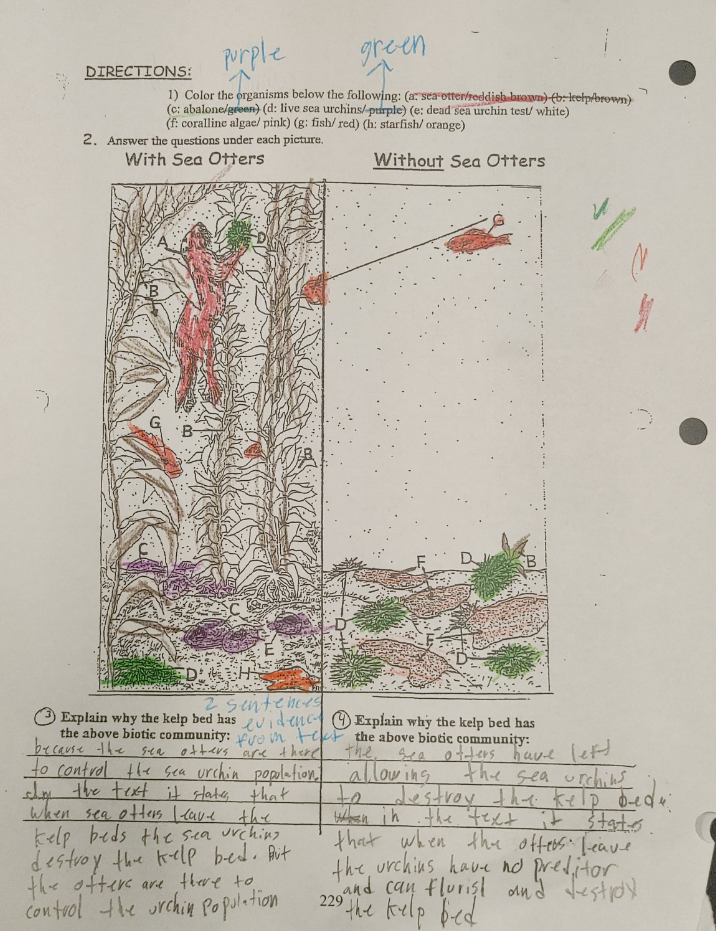 purple green
DIRECTIONS:
1) Color the organisms below the following: (a: sea otter/reddish brown) (b: kelp/brown)
(c: abalone/green) (d: live sea urchins/ purple) (e: dead sea urchin test/ white)
(f: coralline algae/ pink) (g: fish/ red) (h: starfish/ orange)
2. Answer the questions under each picture.
With Sea Otters
Without Sea Otters
A
D
B
G
B
B
C
C
E
D
H
G
F
D
B
D
F
D
2 sentences
evidence
from text
3 Explain why the kelp bed has
the above biotic community:
because the sea otters are there
to control the sea urchin population
the text it states that
when sea otters leave the
kelp beds the sea urchins
destroy the kelp bed. But
the otters are there to
control the urchin population
4 Explain why the kelp bed has
the above biotic community:
the sea otters have left
allowing the sea urchins
to destroy the kelp bed.
When in the text it states
that when the otters leave
the urchins have no preditor
and can flurish and destroy
the kelp bed
229